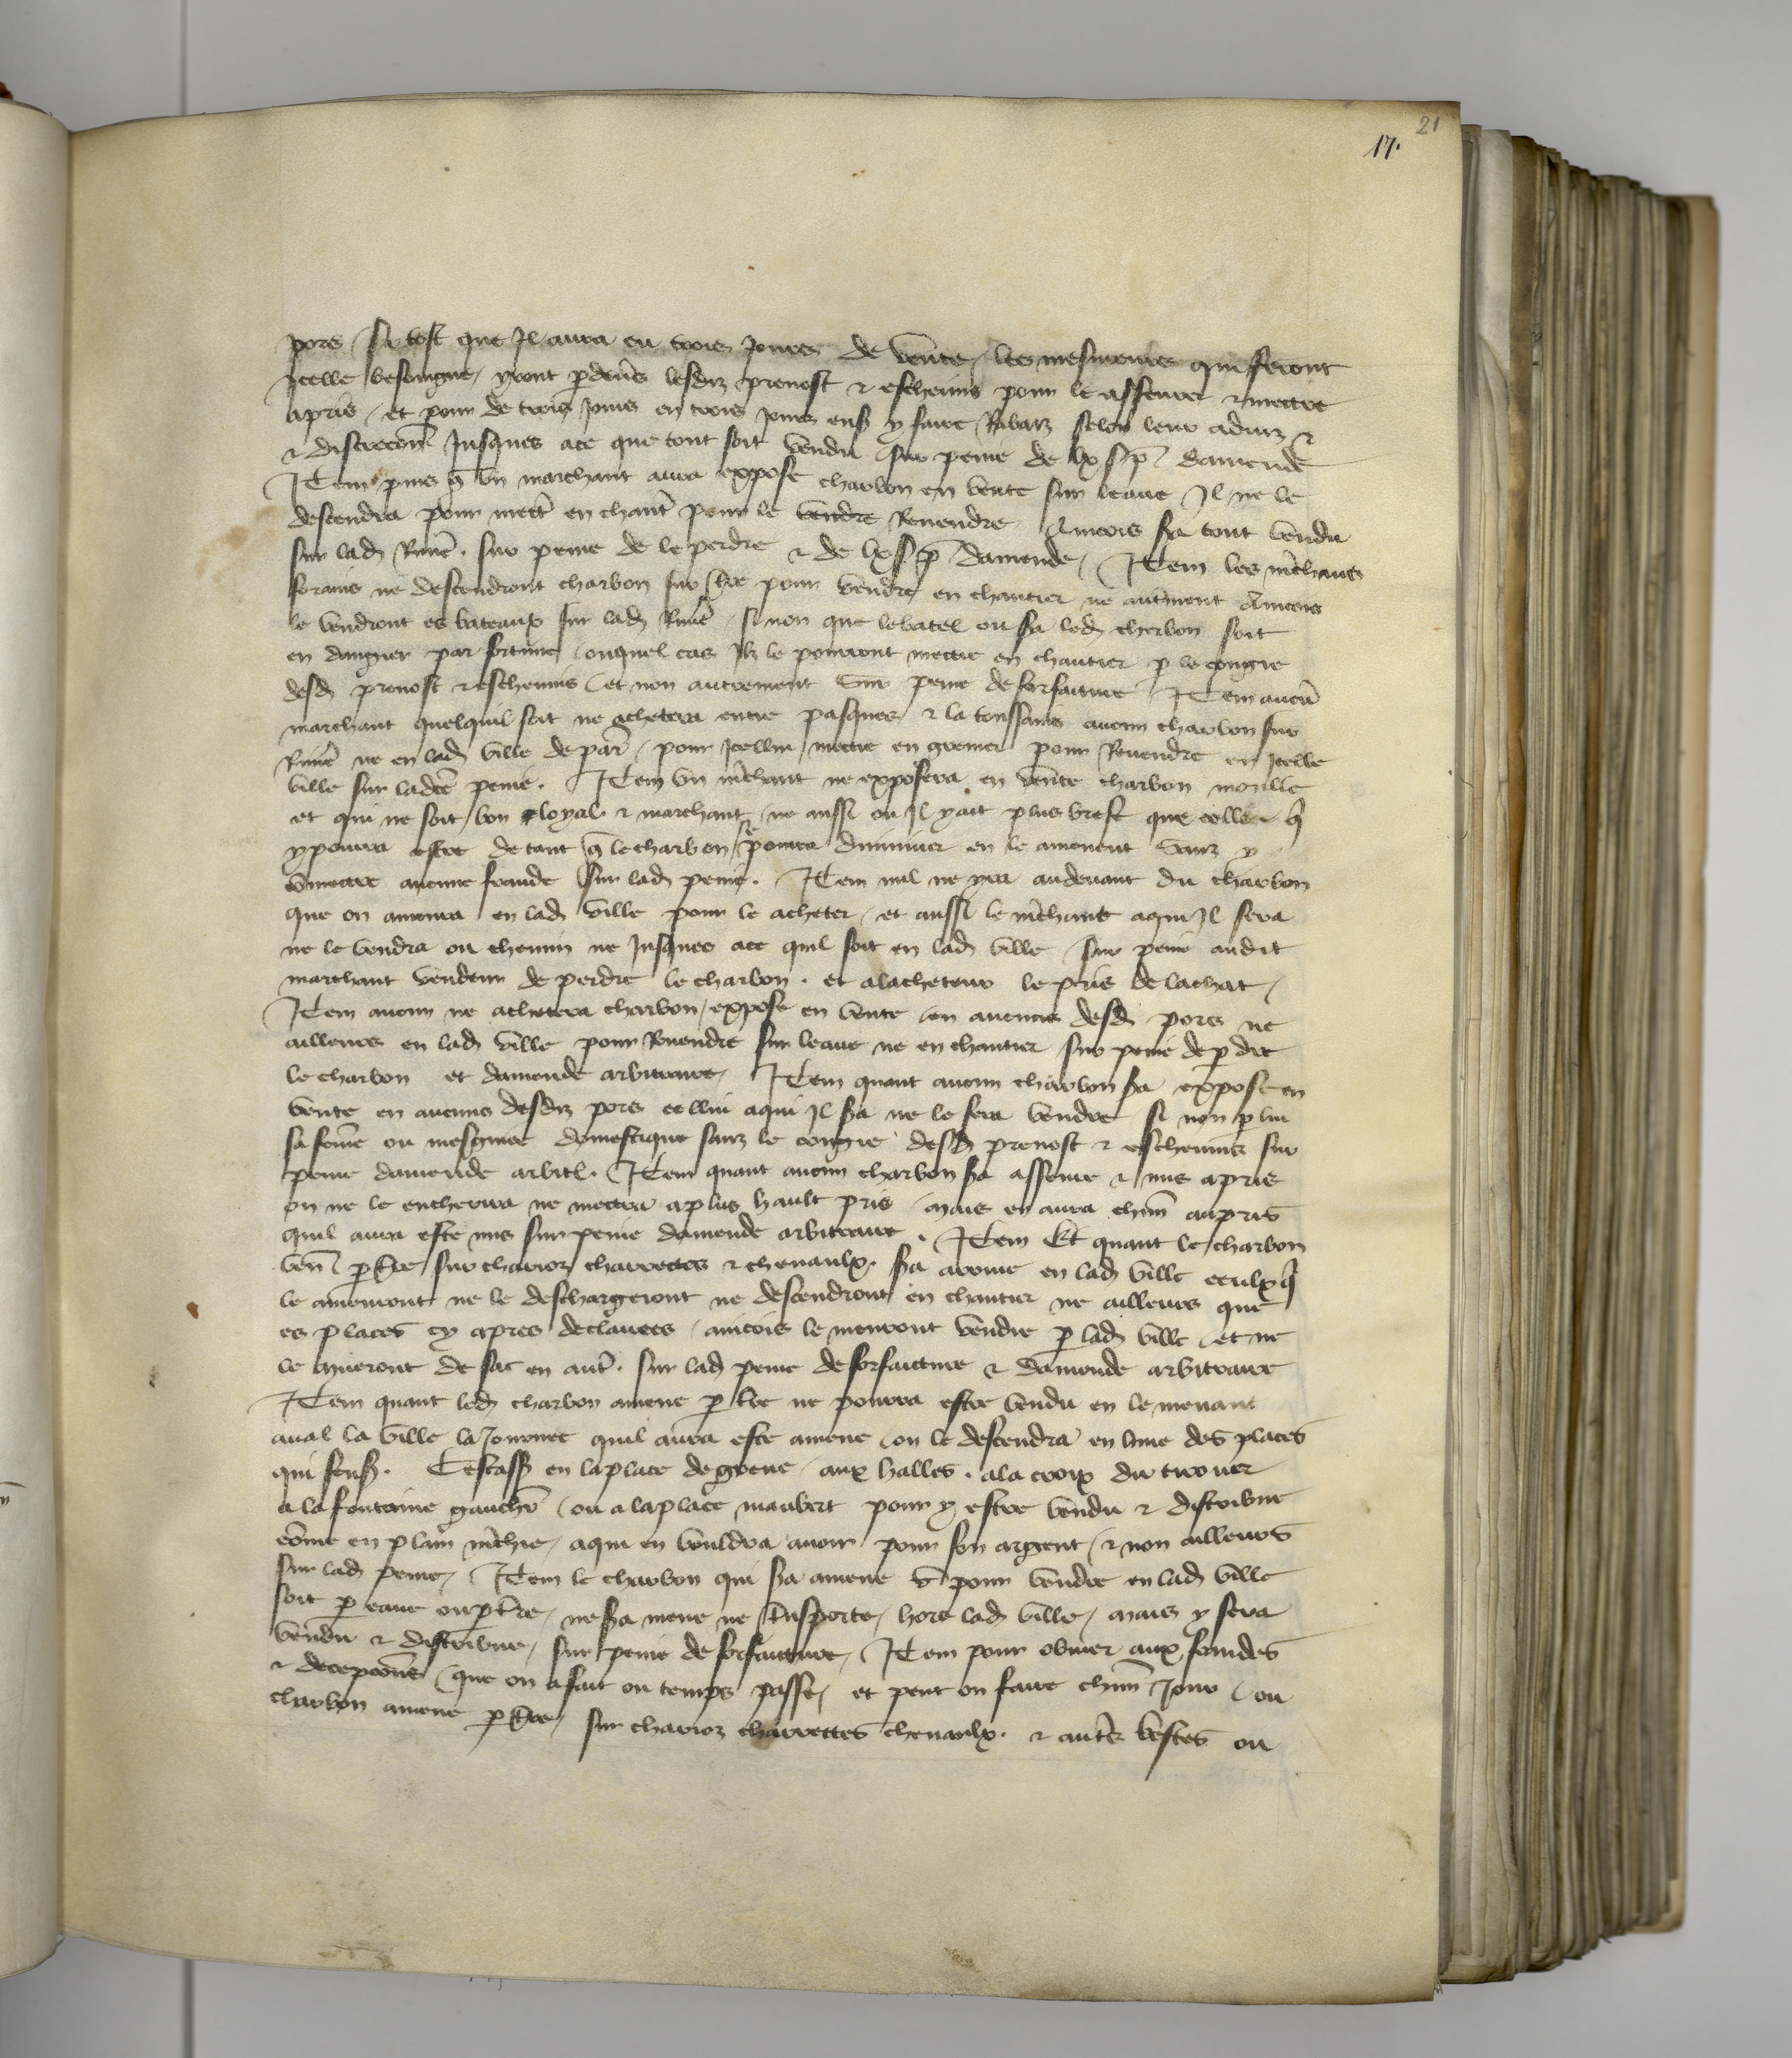 21
17.
pors si tost que Il aura eu trois Jours de vente les mesureurs qui feront
Icelle besoingne yront pdevs lesdiz prevost & eschevins pour le asseurer & mectre
apris et pour de trois Jours en trois Jours ens y faire Rabaiz selon leur advis &
& discrecon Jusques ace que tout soit vendu sur peine de lx s p damende
Item puis q un marchant aura expose charbon en vente sur leaue Il ne le
descendra pour mectre en chant pour le vendre Revendre Aincois sa tout vendu
sur lad Rivie. sur peine de le perdre & de lx s p damende Item les mchans
forains ne descendront charbon sur tre pour vendre en chantier ne autment Aincois
le vendront es bateaux sur lad Rivie si non que le batel ou sa led charbon soit
en dangier par fortune ouquel cas Ilz le pourront mectre en chantier p le congie
desd prevost & eschevins et non autrement Sur peine de forfaiture Item aucun
marchant quelquil soit ne achetera entre pasques & la toussains aucun charbon sur
Rivie ne en lad ville de par pour Icellui mectre en grenier pour Revendre en Icelle
ville sur ladce peine. Item un mchant ne exposera en vente charbon mouille
et qui ne soit bon loyal & marchant ne aussi ou Il yait plus que celle q
ypourra estre de tant q le charbon se pourra diminuer en le amenent sanz y
commectre aucune fraude sur lad peine. Item nul ne yra audevant du charbon
que on amenra en lad ville pour le acheter et aussi le mchant aqui Il sera
ne le vendra ou chemin ne Jusques ace quil soit en lad ville sur peine audit
marchant vendeur de perdre le charbon. et alacheteur le pris de lachat
Item aucun ne achetera charbon expose en vente en aucuns desd pors ne
ailleurs en lad ville pour Revendre sur leaue ne en chantier sur peine de pdre
le charbon et damende arbitraire Item quant aucun charbon sa expose en
vente en aucuns desdiz pors cellui aqui Il sa ne le fera vendre si non p lui
sa feme ou mesgniee domestique sanz le congie desd prevost & eschevins sur
peine damende arbitr. Item quant aucun charbon sa asseure & mis apris
on ne le encherira ne mectra aplus hault pris mais en aura chun aupris
quil aura este mis sur peine damende arbitraire. Item Et quant le charbon
ven p tre sur charioz charrettes & chevaulx. sa arrive en lad ville ceulx q
le amenront ne le deschargeront ne descendront en chantier ne ailleurs que
es places cy apres declairees aincois le menront vendre p lad ville et ne
le mueront de sac en aut. sur lad peine de forfaiture & damende arbitraire
Item quant led charbon amene p tre ne pourra estre vendu en le menant
aval la ville la Journee quil aura este amene on le descendra en lune des places
qui sens. Cestass en laplace de greve aux halles. ala croix du tirouer
a la fontaine gaucher ou a laplace maubert pour y estre vendu & distribue
come en plain mchie aqui en vouldra avoir pour son argent & non ailleurs
sur lad peine Item le charbon qui sa amene pour vendre en lad ville
soit p eaue ou p tre ne sa mene ne tnsporte hors lad ville mais y sera
vendu & distribue sur peine de forfaiture Item pour obvier aux fraudes
& decepcons que on a fait ou temps passe et peut on faire chun Jour ou
charbon amene p tre sur charioz charrettes chevaulx. & autes bestes ou